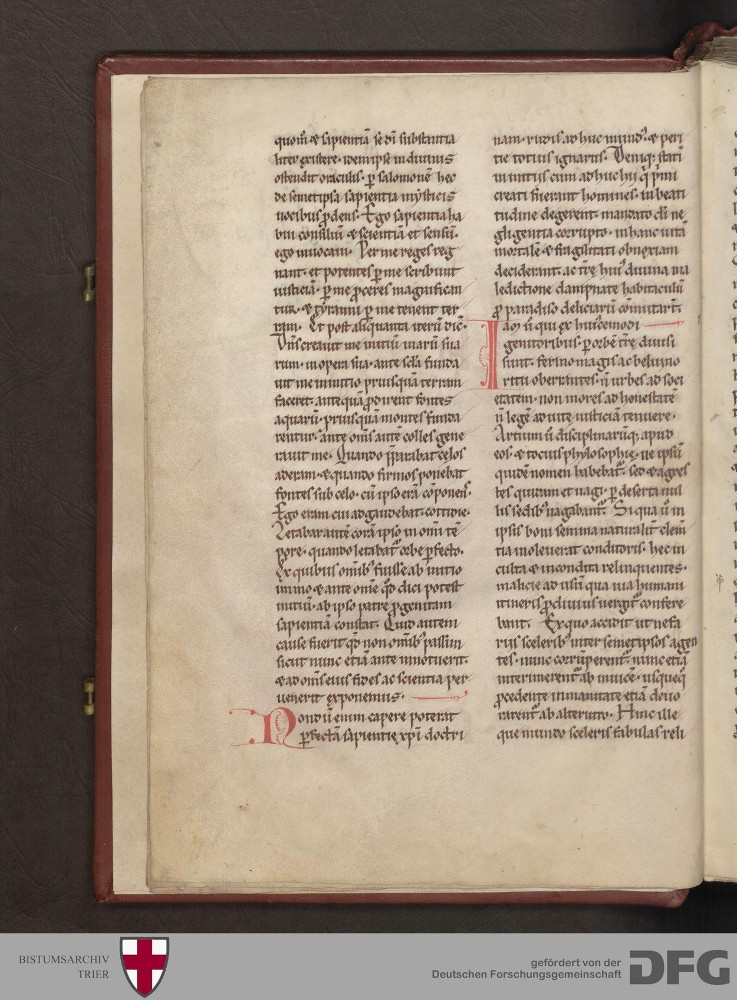 quom̄ & sapientiā sed̄i substantia
liter existere. idem ipse in diuinis
ostendit oraculis. ꝑ salomonē hec
de semetipsa sapientia mysticis
uocibus ꝓdens. Ego sapientia ha
bui consiliū & scientiam et sensū.
ego inuocaui. Per me reges reg
nant. et potentes ꝑ me scribunt
iusticiā. ꝑ me ꝓceres magnifican
tur. & tyranni ꝑ me tenent ter
ram. Et post aliquanta iterū dic̄.
Dn̄s creauit me initiū uiarū sua
rum. in opera sua. ante scl̄a funda
uit me in initio priusquā terram
faceret. antequā ꝓdirent fontes
aquarū. priusquā montes funda
rentur. ante om̄s autē colles gene
rauit me. Quando p̄parabat cęlos
aderam. & quando firmos ponebat
fontes sub celo. cū ipso erā cōponen̄s.
Ego eram cui adgaudebat. cottidie.
Letabar autē corā ipso in omni tē
pore. quando letabat᷑ orbe ꝑfecto.
Ex quibus om̄ib᷒ fuisse ab initio
immo & ante omne qd̄ dici potest
initiū. ab ipso patre ꝓgenitam
sapientiā constat. Quid autem
cause fuerit qd̄ non om̄ib᷒ passim
sicut nunc etiā ante innotuerit.
& ad om̄s eius fides ac scientia per
uenerit exponemus.
Nondū enim capere poterat
ꝑfectā sapientię xp̄i doctri
nam. rudis adhuc mund᷒. & peri
tie totius ignarus. Deniq; statī
in initiis cum adhuc hij q̄ p̄mi
creati fuerant homines. in beati
tudine degerent. mandato dī ne
gligentia corrupto. in hanc uitā
mortalē & fragilitati obnoxiam
deciderunt. ac tr̄ę hui᷒ diuina ma
ledictione dampnate habitaculū
ꝓ paradiso deliciarū cōmutarūt.
Iam ū qui ex huiꝰcemodi
genitoribus. ꝑ orbē tr̄ę diuisi
sunt. ferino magis ac beluino
ritu oberrantes. n̄ urbes ad soci
etatem. non mores ad honestatē
n̄ legē ad uitę iusticiā tenuere.
Artium ū disciplinarūq; apud
eos. & tocius phylosophię. ne ipsū
quidē nomen habebat᷑. sed & agres
tes quidam et uagi. ꝑ deserta nul
lis sedib᷒ uagabant᷑. Si qua ū in
ipsis boni semina naturalit᷑ clem̄
tia inoleuerat conditoris. hec in
culta & incondita relinquentes.
malicie ad usū qua uia humani
itineris ꝓcliuius uergit᷑ confere
bant. Ex quo accidit ut nefa
riis sceleribꝰ inter semetipsos agen
tes. nunc corrūperent᷑. nunc etiā
interimerent᷑ ab inuicē. usqueq;
ꝓcedente inmanitate etiā deuo
rarent᷑ ab alterutro. Hinc ille
que mundo sceleris fabulas reli
BISTUMSARCHIV
TRIER
gefördert von der
Deutschen Forschungsgemeinschaft
DFG